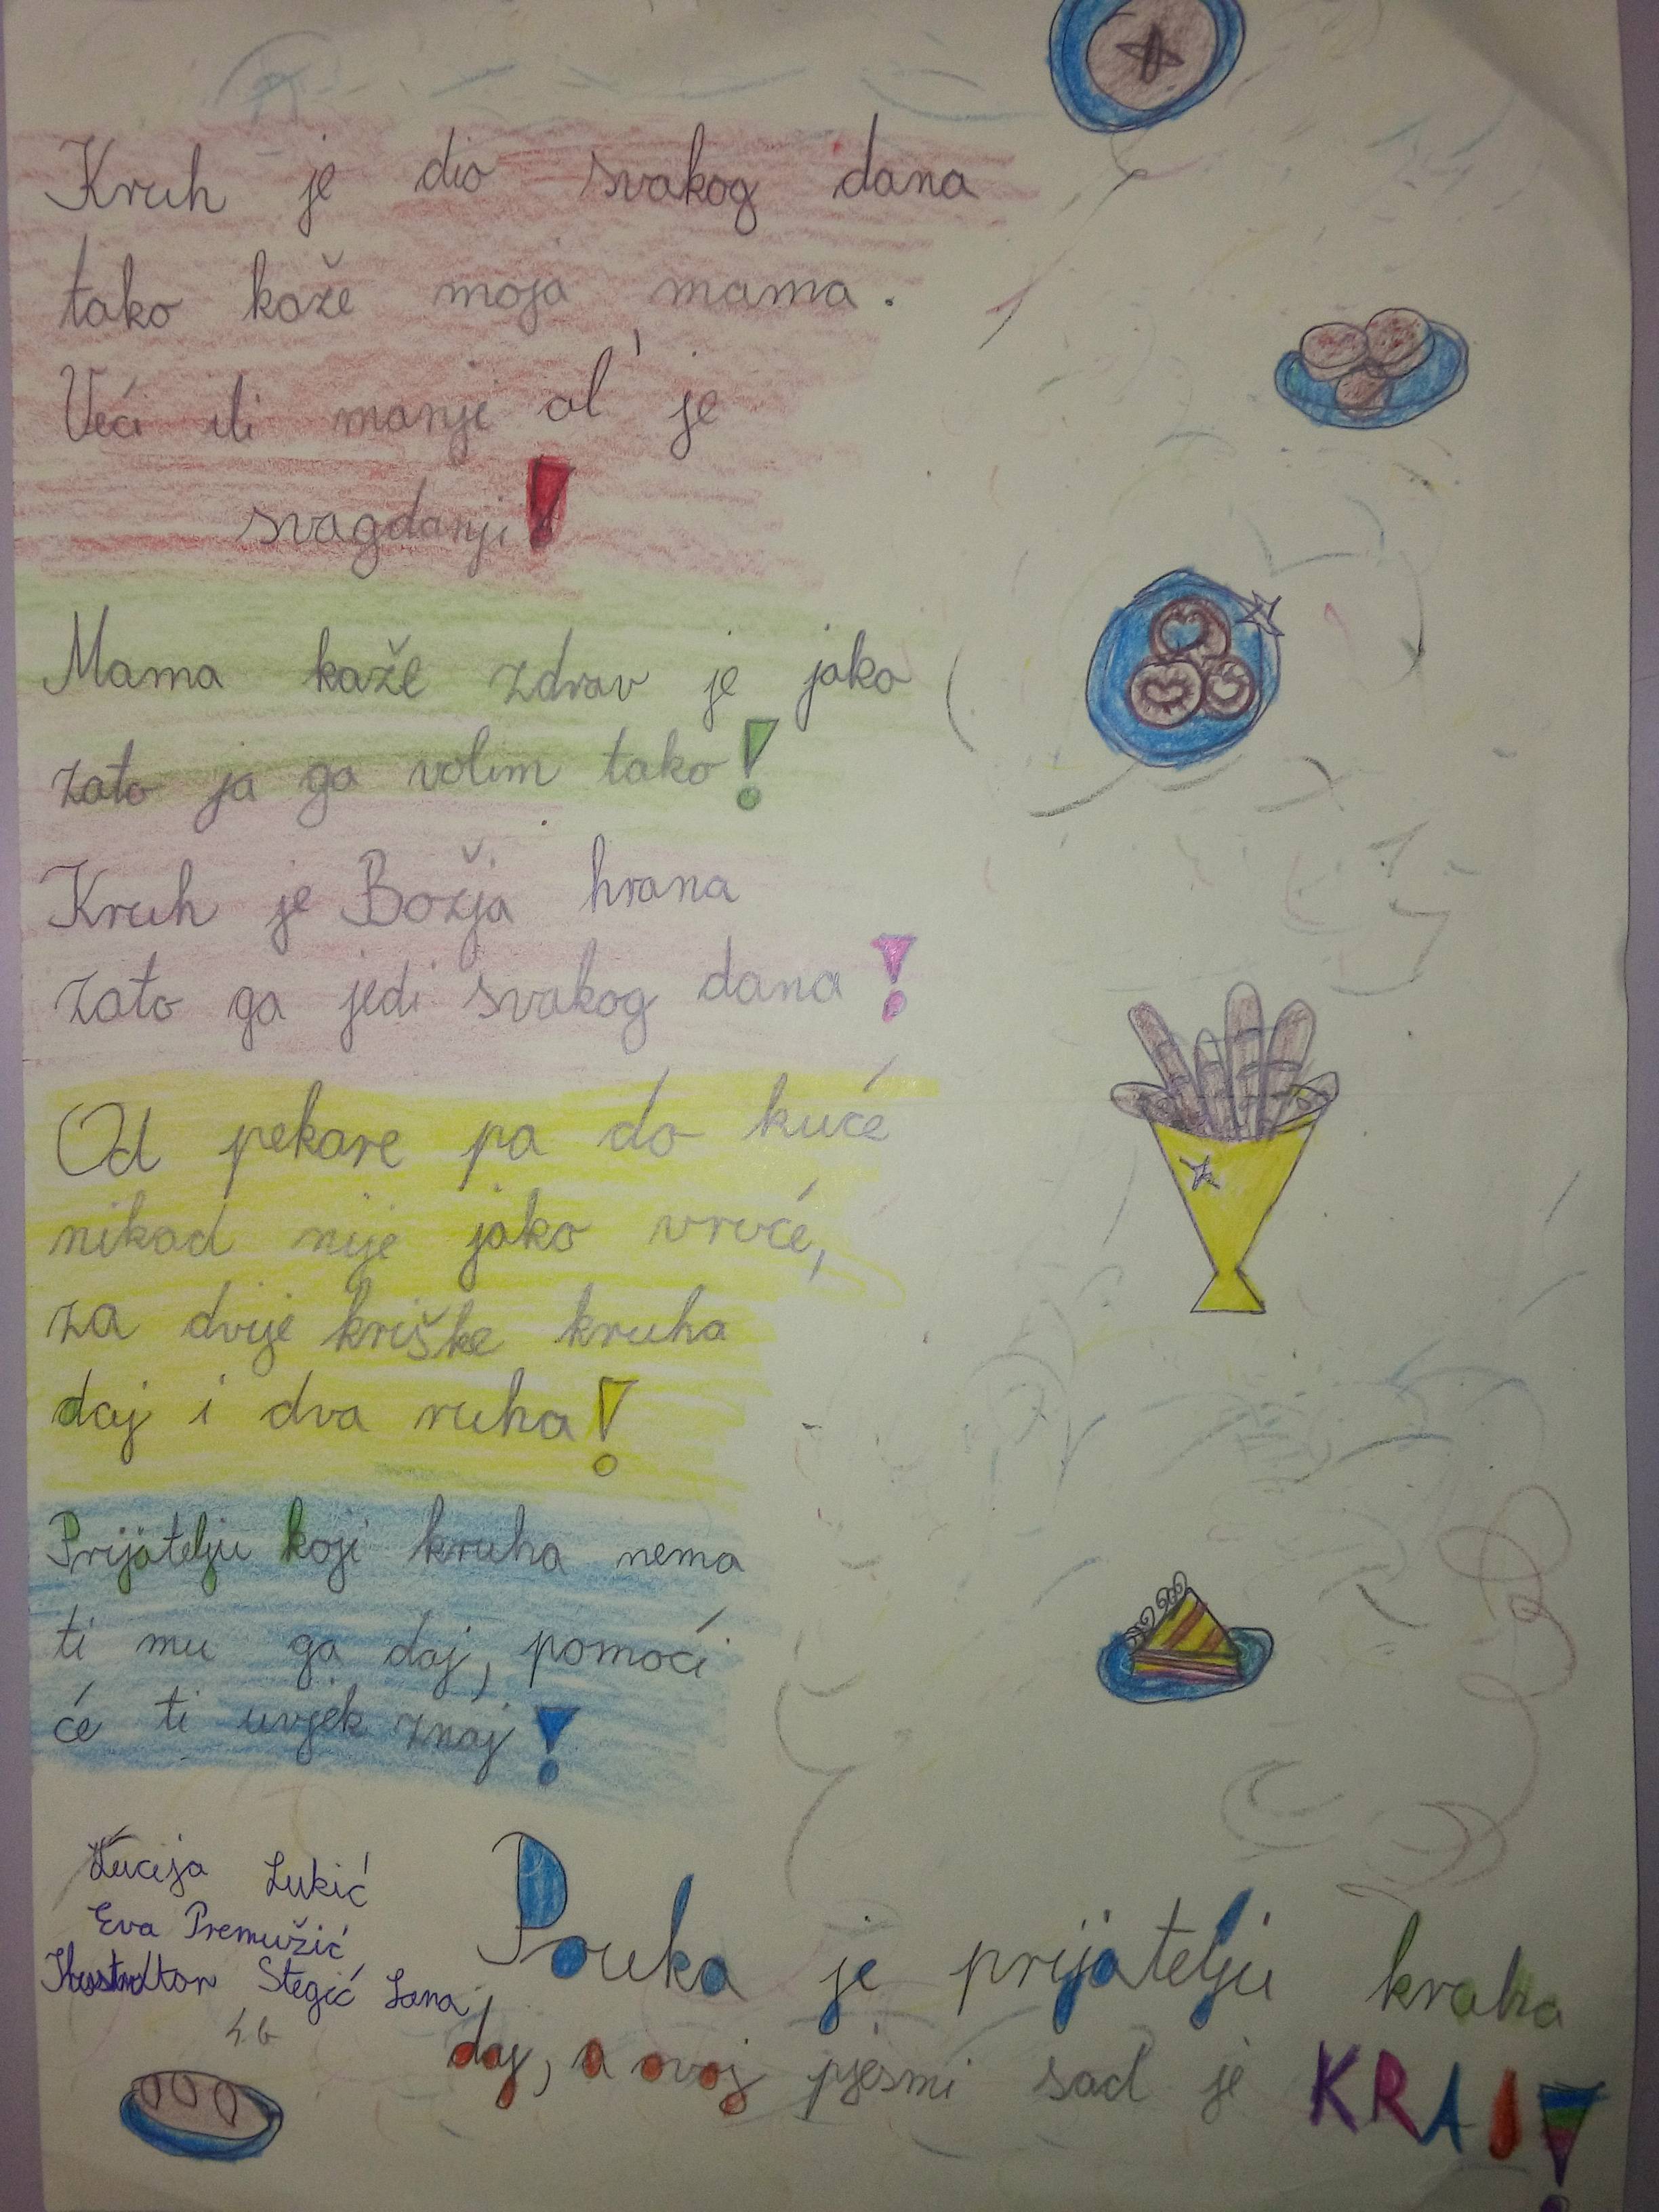 Kruh je dio svakog dana
tako kaže moja mama.
Veći ili manji al' je
svagdanji!
Mama kaže zdrav je jako
zato ja ga volim tako!
Kruh je Božja hrana
zato ga jedi svakog dana!
Od pekare pa do kuće
nikad nije jako vruće,
za dvije kriške kruha
daj i dva ruha!
Prijatelju koji kruha nema
ti mu ga daj, pomoći
će ti uvjek znaj!
Lucija Lukić
Eva Premužić
Ilustrator Stegić Lana
4.b
Pouka je prijatelju kruha
daj, a ovoj pjesmi sad je KRAJ!